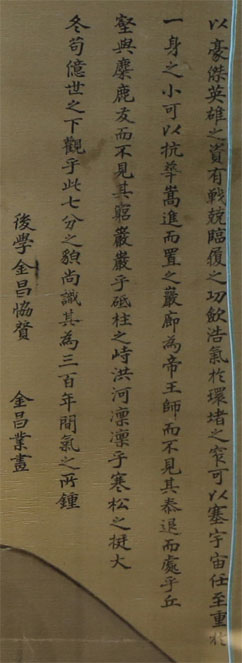 以豪傑英雄之資有戰兢臨履之功斂浩氣於環堵之窄可以塞宇宙任至重於
一身之小可以抗華嵩進而置之巖廊為帝王師而不見其泰退而處乎丘
壑與麋鹿友而不見其窮巖巖乎砥柱之峙洪河凜凜乎寒松之挺大
冬苟億世之下觀乎此七分之貌尚識其為三百年間氣之所鍾
後學金昌協贊 金昌業畫